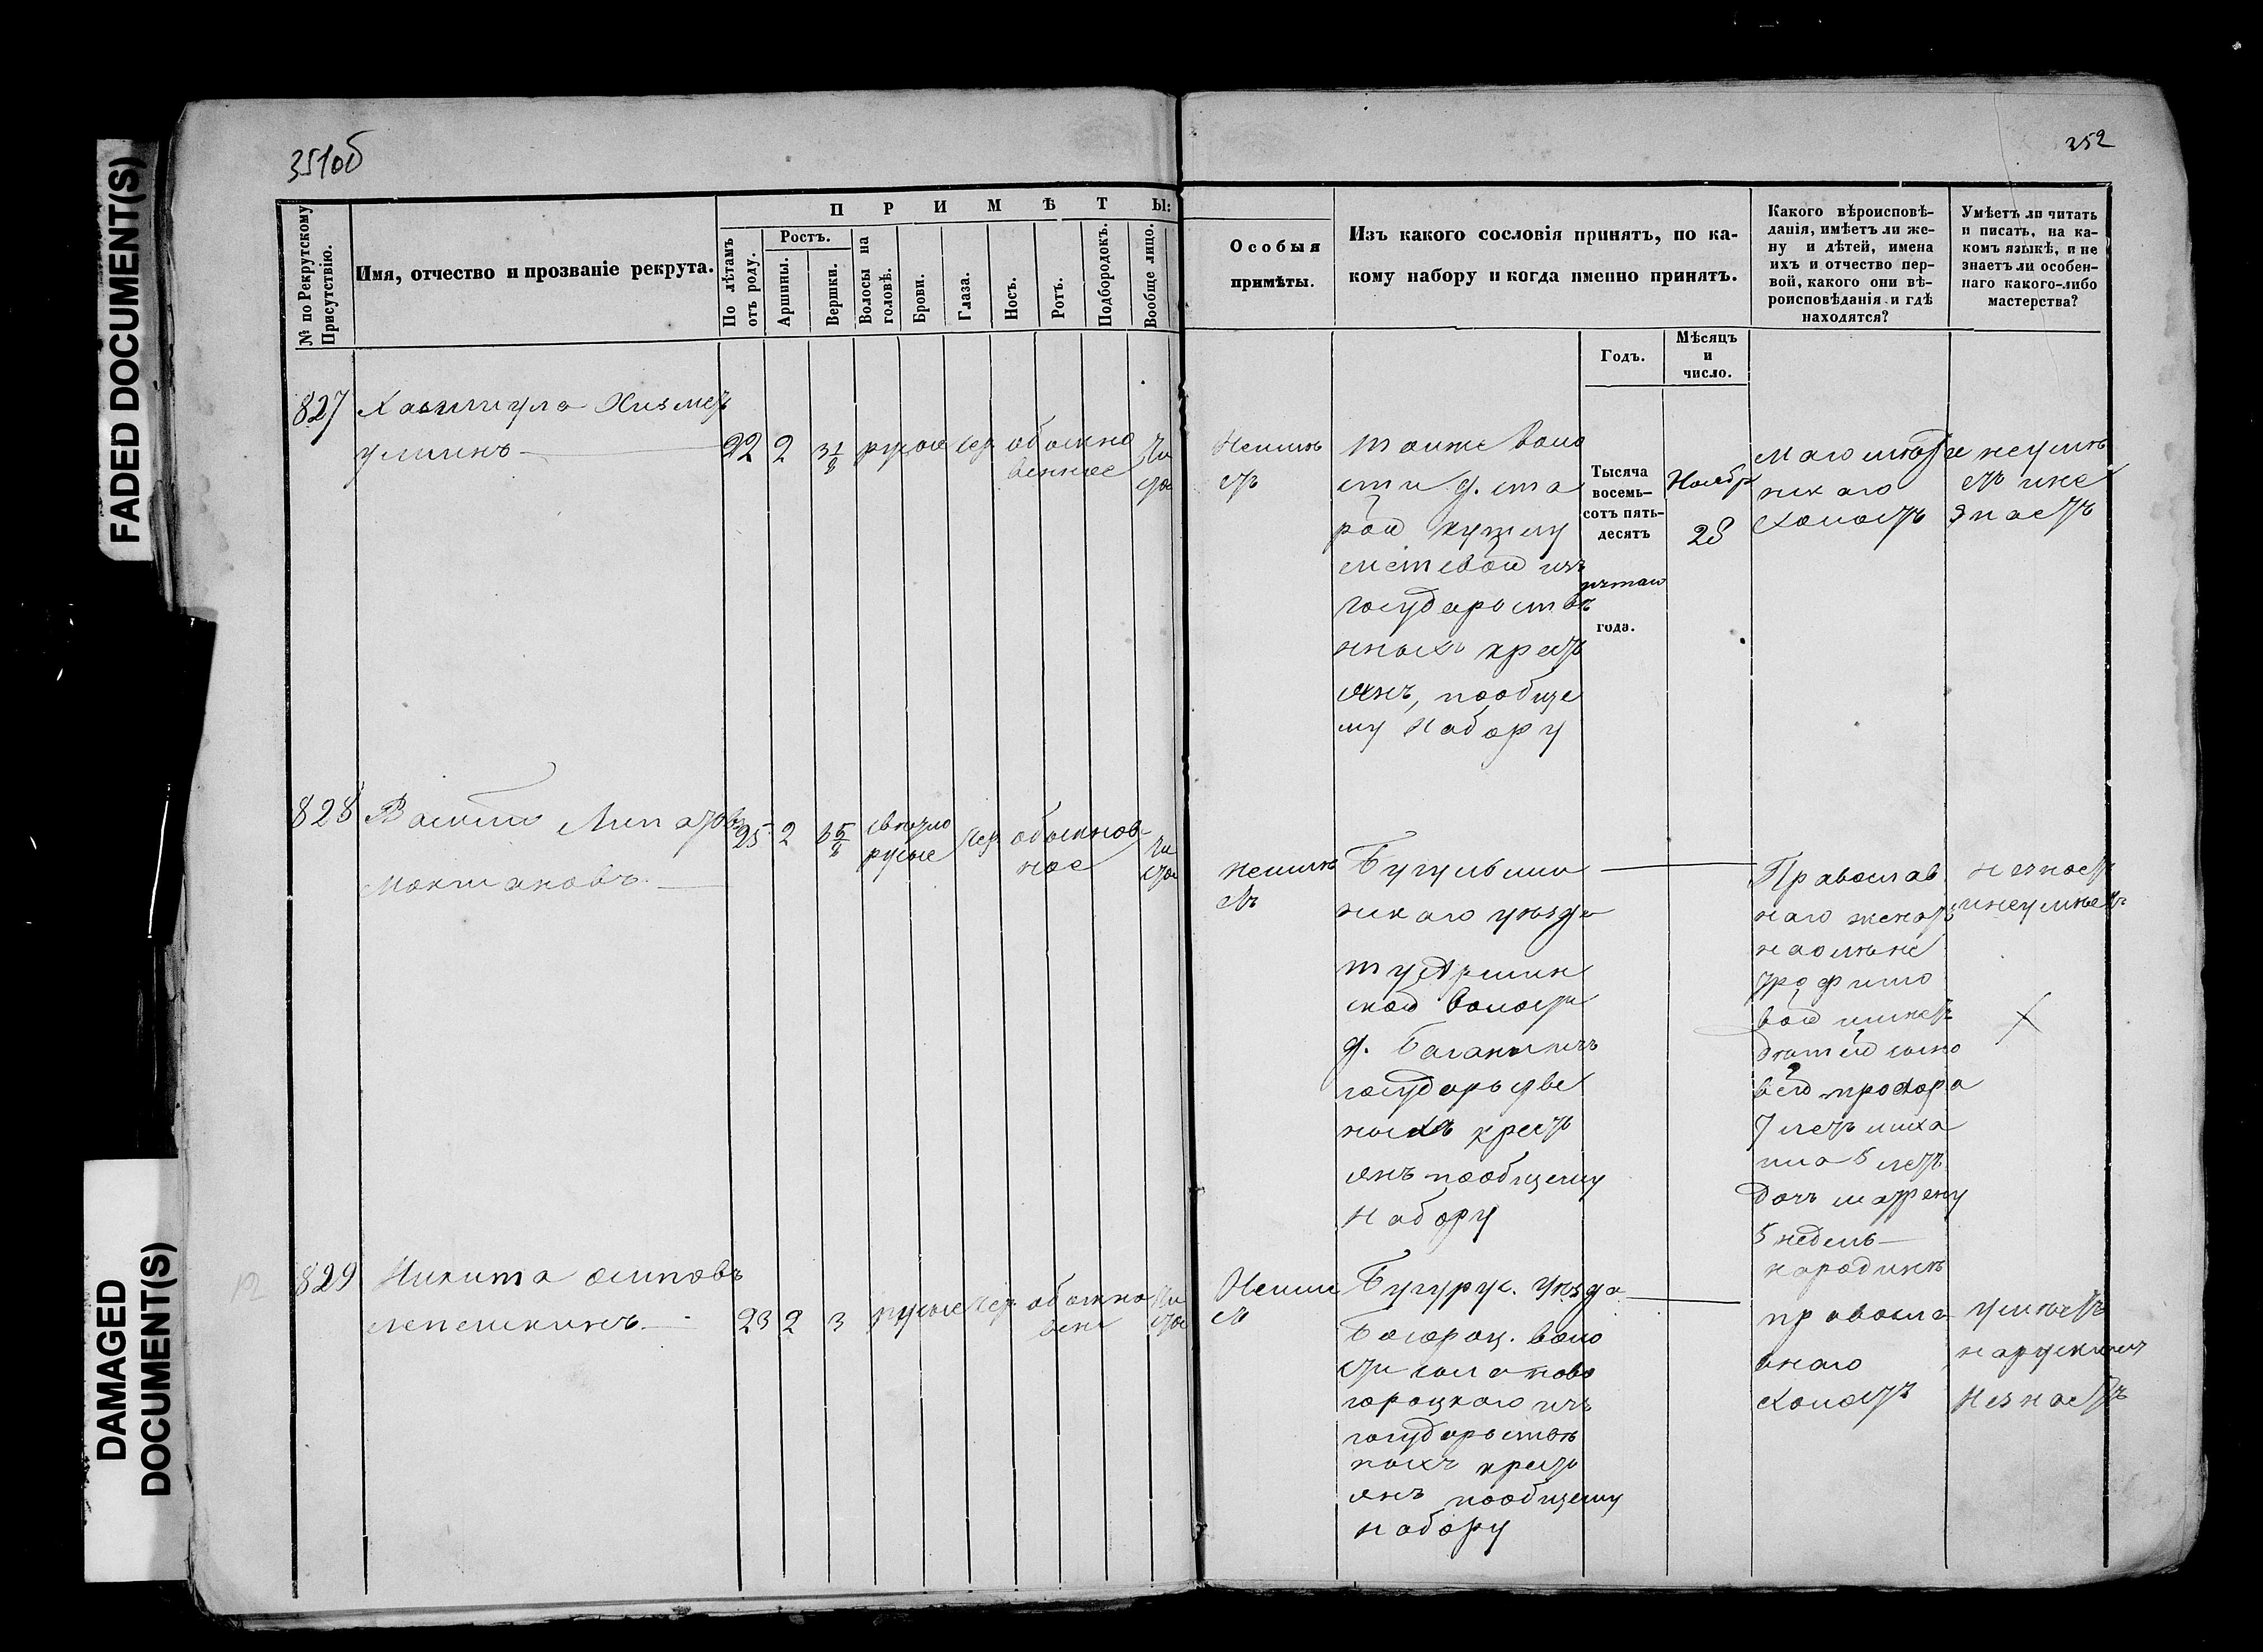 351об
252
FADED DOCUMENT(S)
DAMAGED
DOCUMENT(S)
№ по Рекрутскому
Присутствію.
Имя, отчество и прозваніе рекрута.
ПРИМѢТЫ:
По лѣтамъ
отъ роду.
Ростъ.
Аршины.
Вершки.
Волосы на
головѣ.
Брови.
Глаза.
Носъ.
Ротъ.
Подбородокъ.
Вообще лицо.
Особыя
примѣты.
Изъ какого сословія принятъ, по ка-
кому набору и когда именно принятъ.
Годъ.
Мѣсяцъ
и
число.
Какого вѣроисповѣ-
данія, имѣетъ ли же-
ну и дѣтей, имена
ихъ и отчество пер-
вой, какого они вѣ-
роисповѣданія и гдѣ
находятся?
Умѣетъ ли читать
и писать, на ка-
комъ языкѣ, и не
знаетъ ли особен-
наго какого-либо
мастерства?
827
Хизмет
улминъ
22 2 3 1/8 русые сер обыкно
венное
чи
стое
Неимѣ
етъ
тойже воло
сти д. Ста
рой
из
государстве
нныхъ крест
янъ, пообще
му набору
Тысяча
восемь-
сотъ пять-
десятъ
пятаго
года.
Ноябр
28
Магометан
скаго
холостъ
неумѣ
етъ ине
знаетъ
828
Василий Липатовъ
Мокшановъ
25 2 3 5/8 свѣтло
русые
сер обыкнов
ное
чи
стое
неимѣ
етъ
Бугульмин
скаго уѣзда
ской волости
д.
государстве
ныхъ крест
янъ пообщему
набору
Православ
наго женатъ
трофимо
вой имѣет
дѣтей сыно
вей прохора
7 летъ миха
ила 5 летъ
дочь матрену
5 недель
народинѣ
незнает
инеумѣетъ
829
Никита осиповъ
лепешкинъ
23 2 3 русые сер. обыкно
вен
чи
стое
Неиме
ет
Бугурус. Уѣзда
Богород. воло
сти села ново
городцкаго изъ
государствен
ныхъ крест
янъ пообщему
набору
правосла
внаго
холостъ
умѣетъ
нарускомъ
Незнаетъ
12